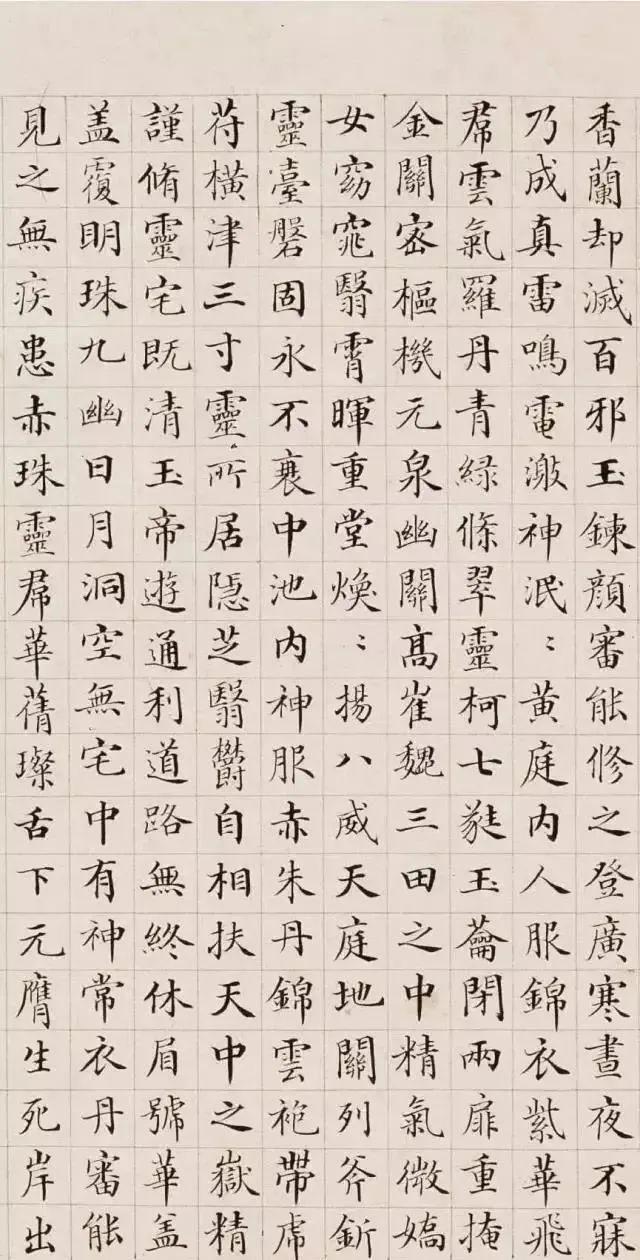 香蘭却滅百邪玉鍊顏審能修之登廣寒晝夜不寐
乃成真雷鳴電激神泯〻黃庭内人服錦衣紫華飛
帬雲氣羅丹青緑條翠靈柯七蕤玉蘥閉兩扉重掩
金關密樞機元泉幽關高崔巍三田之中精氣微嬌
女窈窕翳霄暉重堂煥〻揚八威天庭地關列斧釿
靈臺磐固永不衰中池内神服赤朱丹錦雲袍帶虎
符横津三寸靈所居隱芝翳鬱自相扶天中之嶽精
謹脩靈宅既清玉帝遊通利道路無終休眉號華盖
盖覆明珠九幽日月洞空無宅中有神常衣丹審能
見之無疾患赤珠靈帬華蒨璨舌下元膺生死岸出